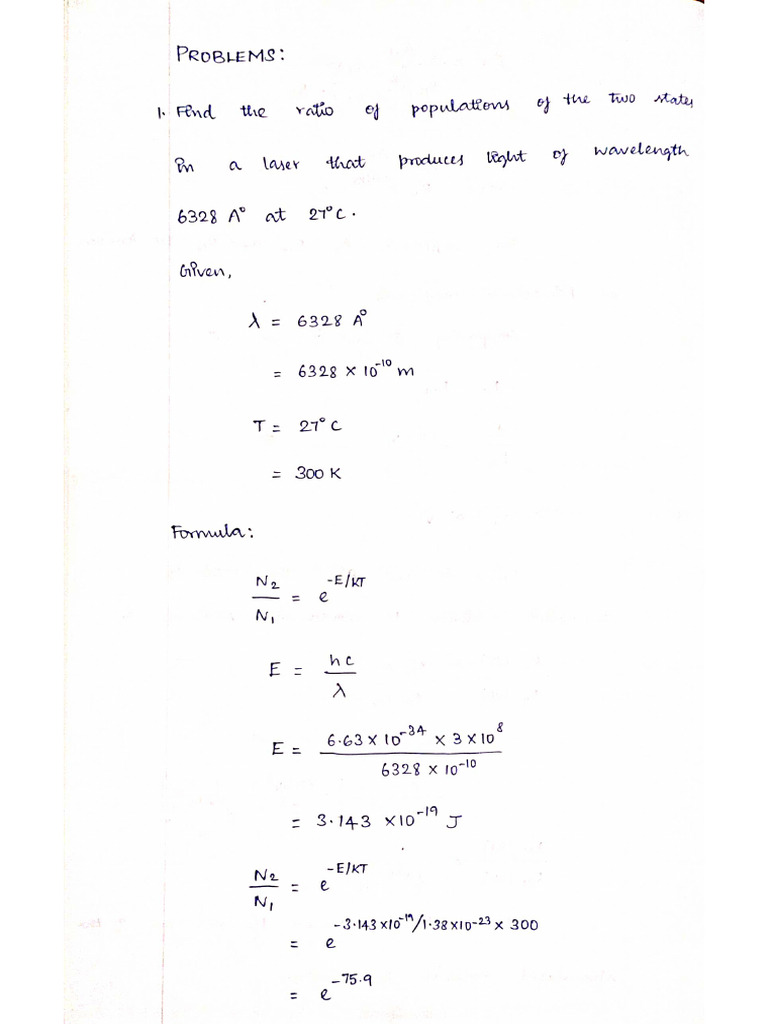 PROBLEMS:
1. Find the ratio of populations of the two states
in a laser that produces light of wavelength
6328 A° at 27°C.
Given,
λ = 6328 A°
= 6328 × 10⁻¹⁰ m
T = 27°C
= 300 K
Formula:
N₂/N₁ = e^(-E/KT)
E = hc/λ
E = 6.63 × 10⁻³⁴ × 3 × 10⁸ / 6328 × 10⁻¹⁰
= 3.143 × 10⁻¹⁹ J
N₂/N₁ = e^(-E/KT)
= e^(-3.143 × 10⁻¹⁹/1.38 × 10⁻²³ × 300)
= e^(-75.9)